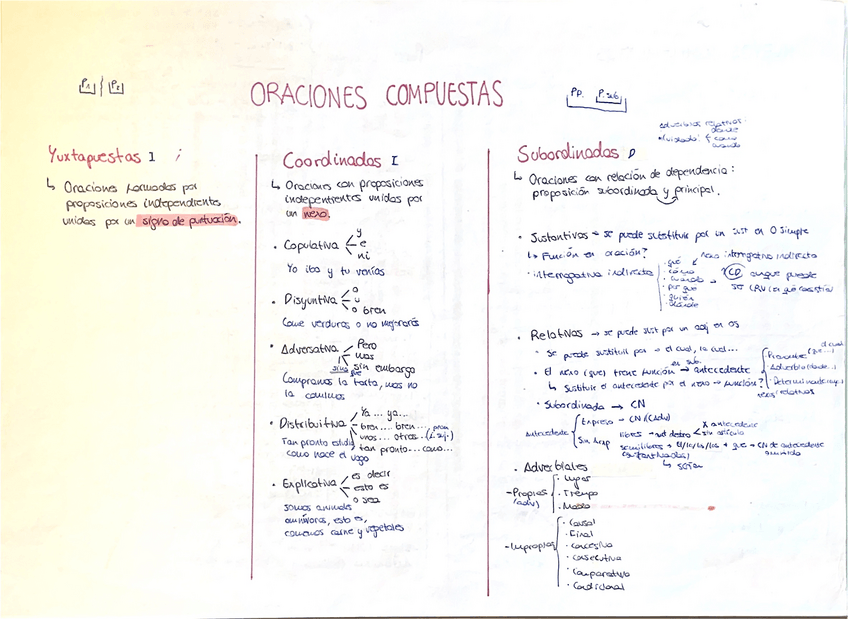 P1 P2
ORACIONES COMPUESTAS
Pp. P. sub.
Adverbios relativos:
donde
como
cuando
Yuxtapuestas I ;
↳ Oraciones formadas por
proposiciones independientes
unidas por un signo de puntuación.
Coordinadas I
↳ Oraciones con proposiciones
independientes unidas por
un nexo.
• Copulativa
y
e
ni
Yo iba y tu venías
• Disyuntiva
o
u
o bien
Come verduras o no mejorarás
• Adversativa
Pero
mas
sino que
sin embargo
Compramos la tarta, mas no
la comimos
• Distributiva
Ya... ya...
bien... bien...
unos... otros...
tan pronto... como...
Tan pronto
como hace el vago
• Explicativa
es decir
esto es
o sea
Somos animales
omnívoros, esto es,
comemos carne y vegetales
Subordinadas
↳ Oraciones con relación de dependencia:
proposición subordinada y principal.
• Sustantivas → se puede sustituir por un sust en O simple
↳ Función en oración?
• interrogativa indirecta
nexo interrogativo indirecto
• qué
• cómo
• cuándo
• por qué
• quién
• dónde
CD aunque puede
ser CRV (en qué consistía)
• Relativas → se puede sust por un adj en OS
• Se puede sustituir por → el cual, la cual...
• El nexo (que) tiene función en sub. → antecedente
↳ Sustituir el antecedente por el nexo → función?
el cual
Pronombre (que...)
Adverbio (donde...)
Determinante
nexos relativos
• Subordinada → CN
Antecedente
Expreso → CN (CAdv)
Sin Ant
libres → X antecedente
sin artículo
semilibres → el/la/los/las + que → CN de antecedente
omitido
(sustantivadas)
• Adverbiales
- Propias
(adv)
• Lugar
• Tiempo
• Modo
- Impropias
• Causal
• Final
• Concesiva
• Consecutiva
• Comparativa
• Condicional